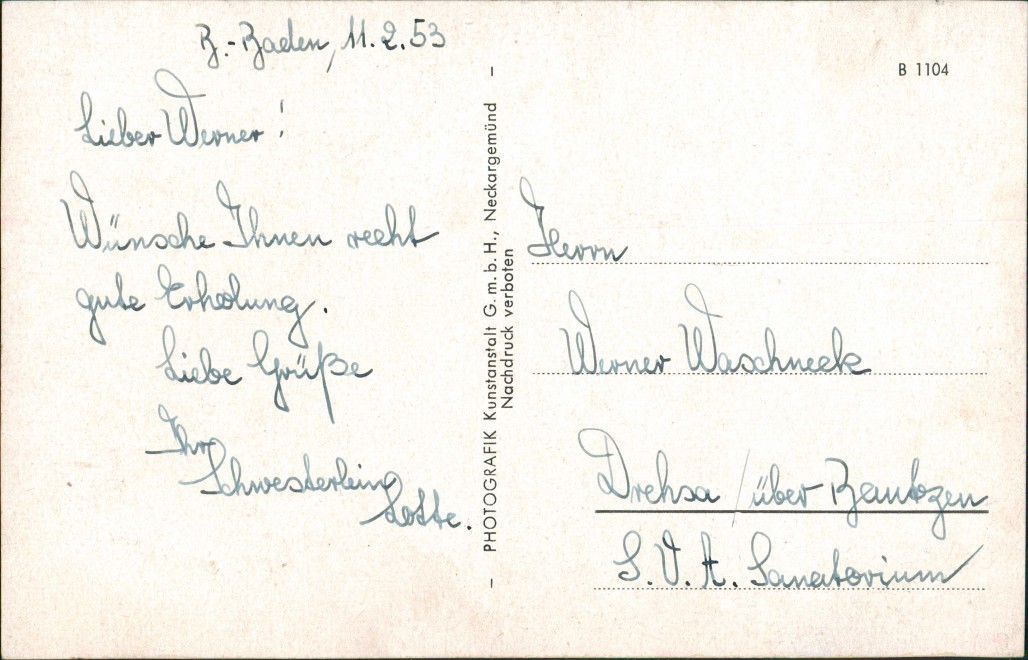 B.-Baden, 11.2.53
Lieber Werner!
Wünsche Ihnen recht
gute Erholung.
Liebe Grüße
Ihr
Schwesterlein
Lotte.
PHOTOGRAFIK Kunstanstalt G.m.b.H., Neckargemünd
Nachdruck verboten
B 1104
Herrn
Werner Waschneck
Drehsa / über Bautzen
S.V.A. Sanatorium